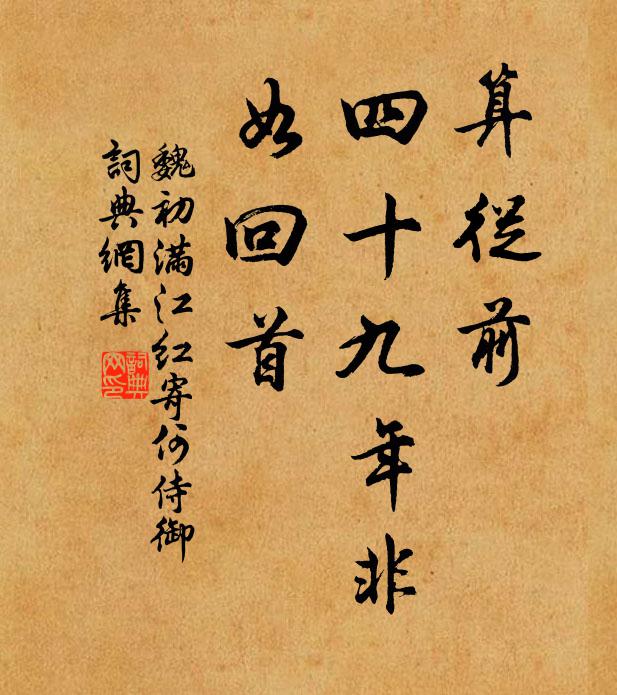 算從前
四十九年非
如回首
魏初滿江紅寄何侍御
詞典網集
詞典網印